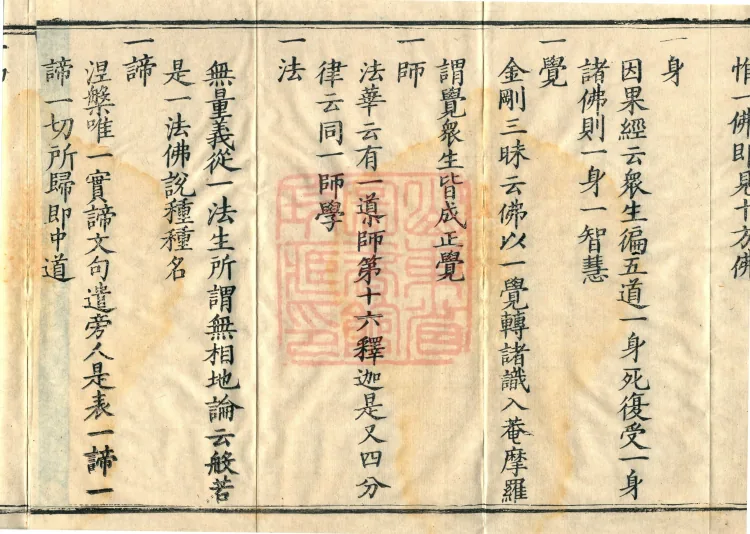 惟一佛即見十方佛
一身
因果經云衆生徧五道一身死復受一身
諸佛則一身一智慧
一覺
金剛三昧云佛以一覺轉諸識入菴摩羅
謂覺衆生皆成正覺
一師
法華云有一導師第十六釋迦是又四分
律云同一師學
一法
無量義從一法生所謂無相地論云般若
是一法佛說種種名
一諦
涅槃唯一實諦文句遣旁人是表一諦一
諦一切所歸即中道